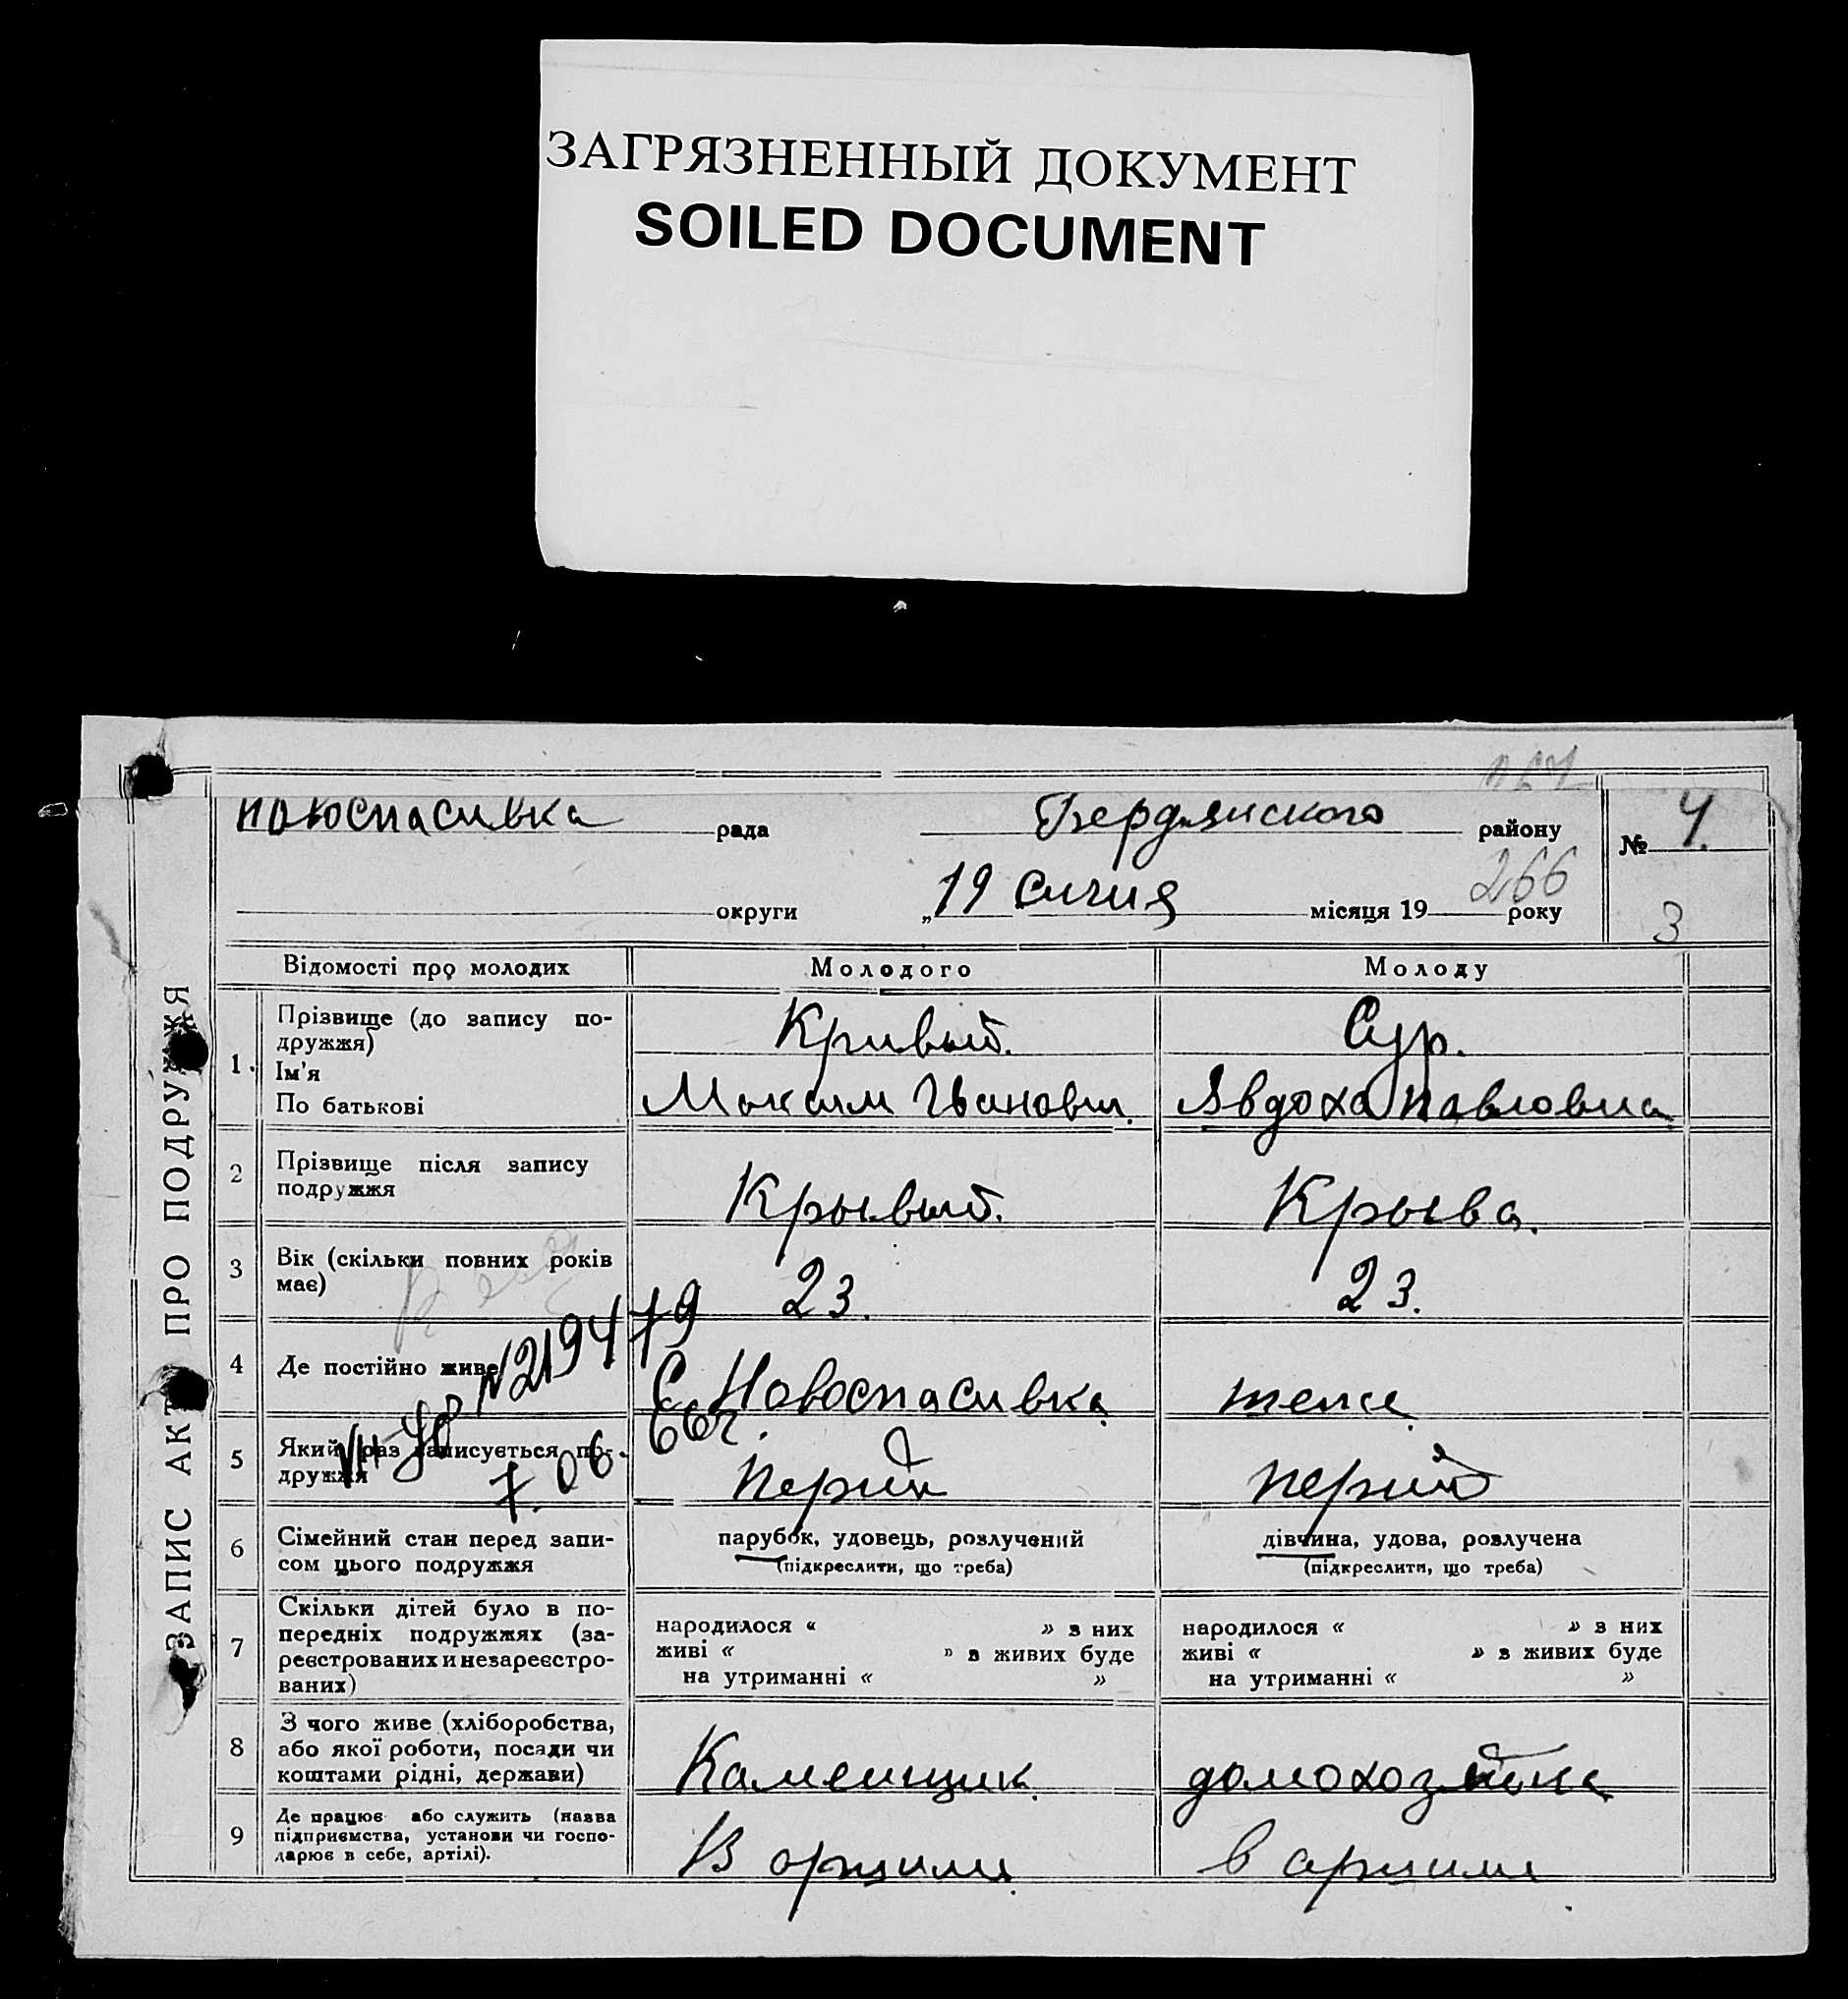 ЗАГРЯЗНЕННЫЙ ДОКУМЕНТ
SOILED DOCUMENT
Новоспасивка рада Бердянского району № 4.
округи „19 сичня місяця 19 року
266
3
ЗАПИС АКТУ ПРО ПОДРУЖЖЯ
Відомості про молодих Молодого Молоду
1. Прізвище (до запису по-
дружжя) Кривый. Сур.
Ім'я
По батькові Максим Іванович. Явдоха Павловна
2 Прізвище після запису
подружжя Крывый. Крыва.
3 Вік (скільки повних років
має) 23. 23.
4 Де постійно живе С. Новоспасивка теже
N219479
VII-ЯР
7.06. 66г.
5 Який раз записується по-
дружжя перий перий
6 Сімейний стан перед запи-
сом цього подружжя
парубок, удовець, розлучений
(підкреслити, що треба)
дівчина, удова, розлучена
(підкреслити, що треба)
7 Скільки дітей було в по-
передніх подружжях (за-
реєстрованих и незареєстро-
ваних)
народилося “ ” з них
живі “ ” з живих буде
на утриманні “ ”
народилося “ ” з них
живі “ ” з живих буде
на утриманні “ ”
8 З чого живе (хліборобства,
або якої роботи, посади чи
коштами рідні, держави) Каменщик домохозяйка
9 Де працює або служить (назва
підприємства, установи чи госпо-
дарює в себе, артілі). В артили в артили